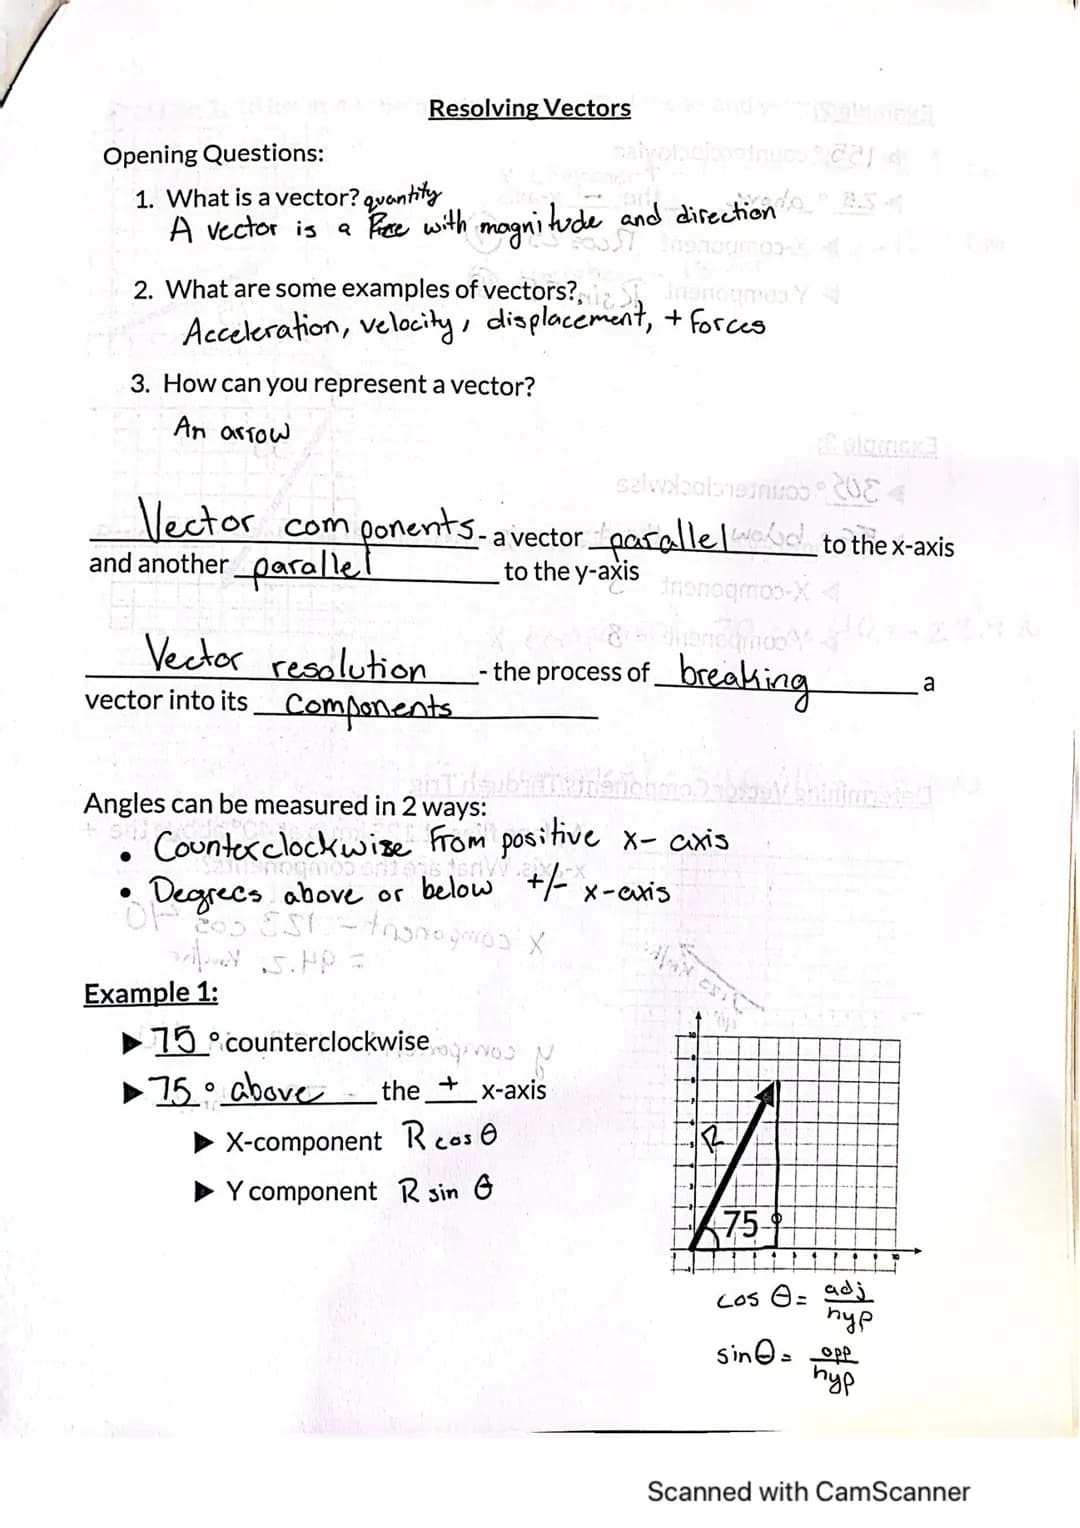 Resolving Vectors
Opening Questions:
1. What is a vector? quantity
A vector is a with magnitude and direction
2. What are some examples of vectors?
Acceleration, velocity, displacement, + forces
3. How can you represent a vector?
An arrow
Vector components - a vector parallel to the x-axis
and another parallel to the y-axis
Vector resolution - the process of breaking a
vector into its Components
Angles can be measured in 2 ways:
• Counterclockwise from positive x-axis
• Degrees above or below +/- x-axis
Example 1:
▶ 75° counterclockwise
▶ 75° above the + x-axis
▶ X-component R cos θ
▶ Y component R sin θ
R
75°
cos θ = adj
hyp
sin θ = opp
hyp
Scanned with CamScanner